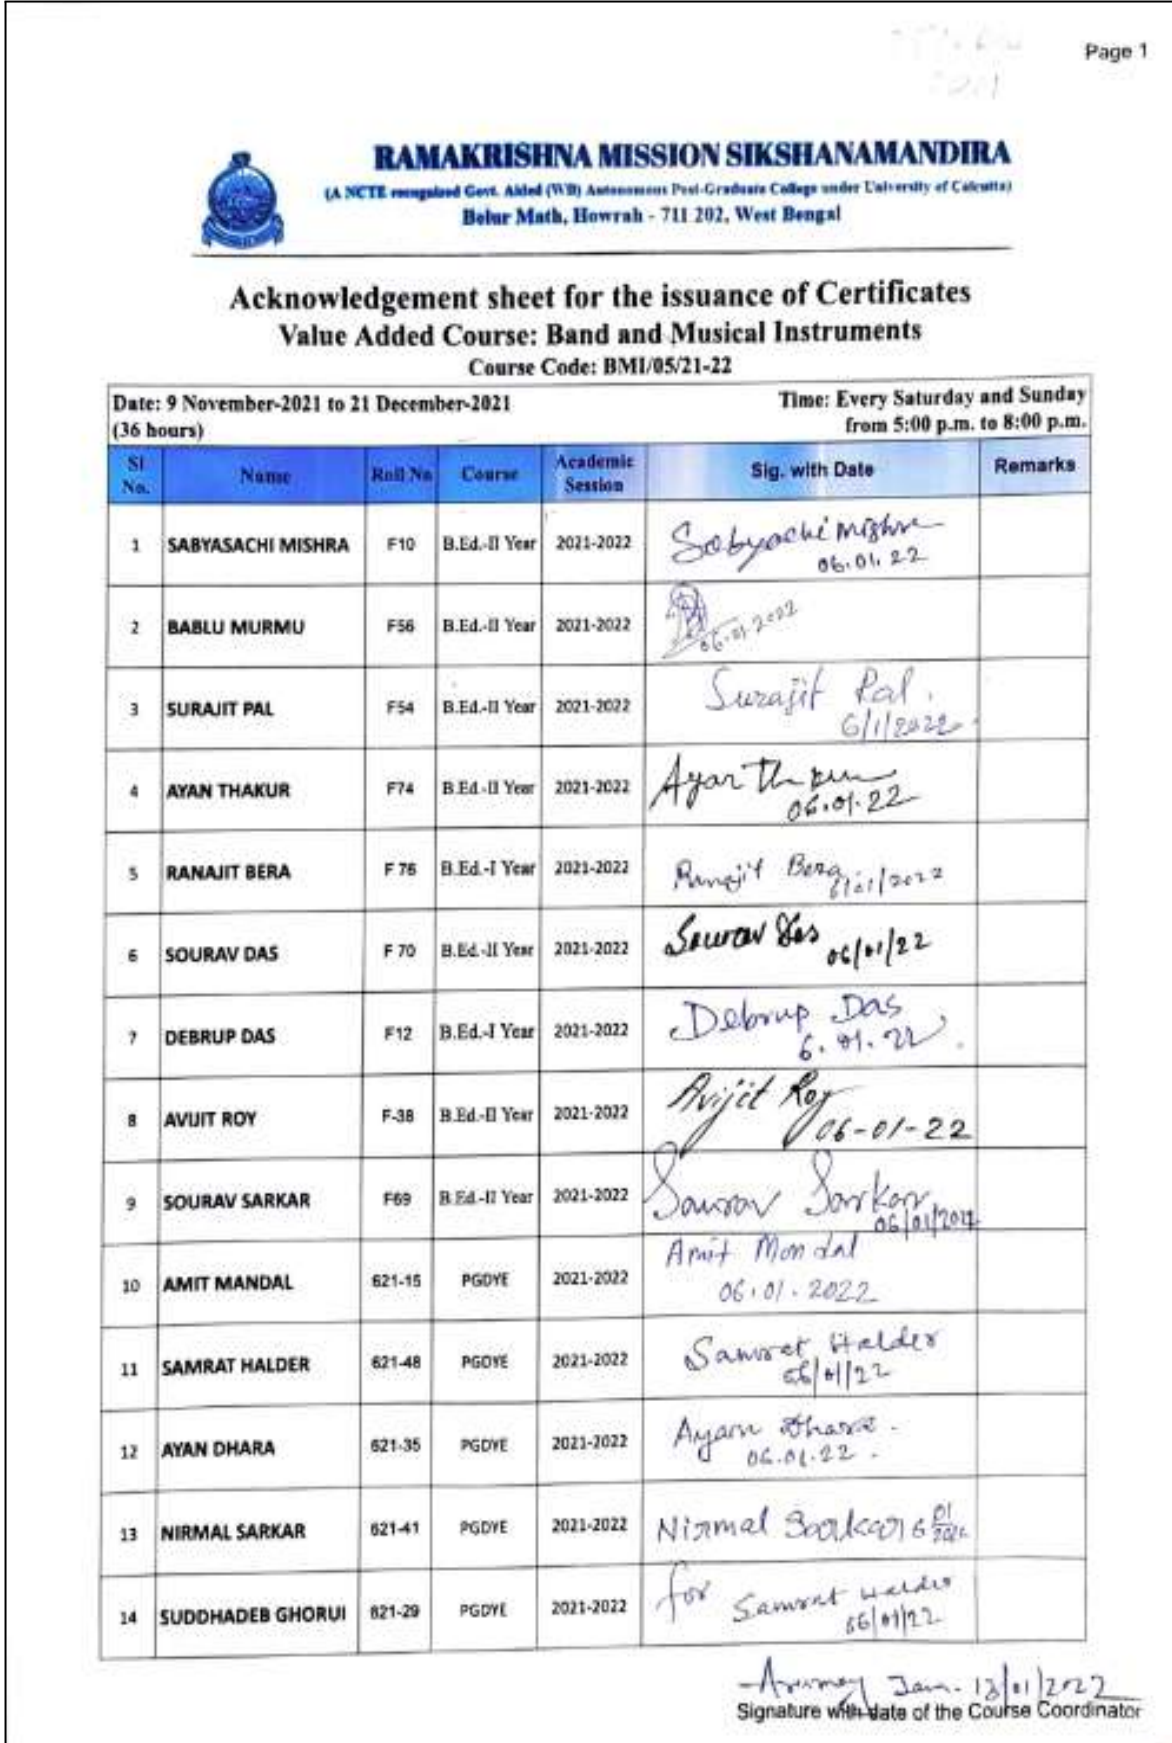 Page 1
RAMAKRISHNA MISSION SIKSHANAMANDIRA
(A NCTE recognised Govt. Aided (WB) Autonomous Post-Graduate College under University of Calcutta)
Belur Math, Howrah - 711 202, West Bengal
Acknowledgement sheet for the issuance of Certificates
Value Added Course: Band and Musical Instruments
Course Code: BMI/05/21-22
Date: 9 November-2021 to 21 December-2021 Time: Every Saturday and Sunday
(36 hours) from 5:00 p.m. to 8:00 p.m.
Sl No. Name Roll No Course Academic Session Sig. with Date Remarks
1 SABYASACHI MISHRA F10 B.Ed.-II Year 2021-2022 Sabyachi Mishra
06.01.22
2 BABLU MURMU F56 B.Ed.-II Year 2021-2022 06-01-2022
3 SURAJIT PAL F54 B.Ed.-II Year 2021-2022 Surajit Pal.
6/1/2022
4 AYAN THAKUR F74 B.Ed.-II Year 2021-2022 Ayan
06.01.22
5 RANAJIT BERA F 76 B.Ed.-I Year 2021-2022 Ranajit Bera
6/01/2022
6 SOURAV DAS F 70 B.Ed.-II Year 2021-2022 Sourav Das 06/01/22
7 DEBRUP DAS F12 B.Ed.-I Year 2021-2022 Debrup Das
6.01.22
8 AVIJIT ROY F-38 B.Ed.-II Year 2021-2022 Avijit Roy
06-01-22
9 SOURAV SARKAR F69 B.Ed.-II Year 2021-2022 Sourav Sarkar
06/01/2022
10 AMIT MANDAL 621-15 PGDYE 2021-2022 Amit Mondal
06.01.2022
11 SAMRAT HALDER 621-48 PGDYE 2021-2022 Samrat Halder
06/01/22
12 AYAN DHARA 621-35 PGDYE 2021-2022 Ayan Dhara.
06.01.22.
13 NIRMAL SARKAR 621-41 PGDYE 2021-2022 Nirmal Sarkar 6 01
14 SUDDHADEB GHORUI 621-29 PGDYE 2021-2022 for Samrat Halder
06/01/22
Jana 13/01/2022
Signature with date of the Course Coordinator